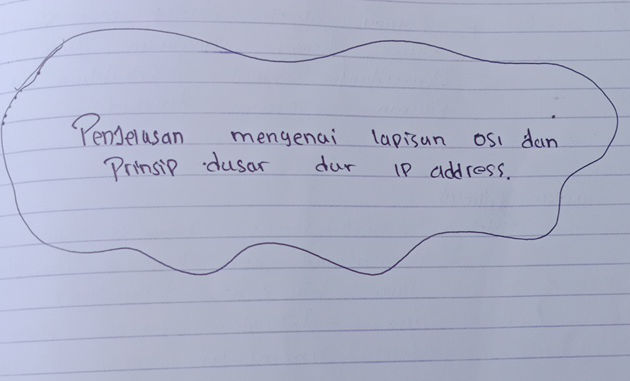 Penjelasan mengenai lapisan OSI dan
Prinsip dasar dar IP address.